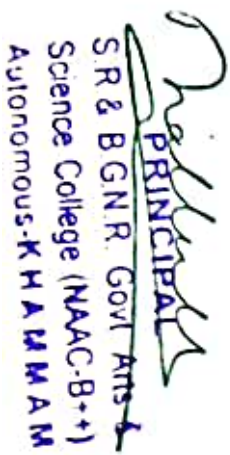 PRINCIPAL
S.R & B.G.N.R. Govt Arts &
Science College (NAAC-B++)
Autonomous-KHAMMAM